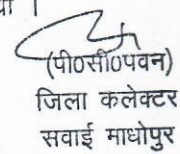 (पी0सी0पवन)
जिला कलेक्टर
सवाई माधोपुर